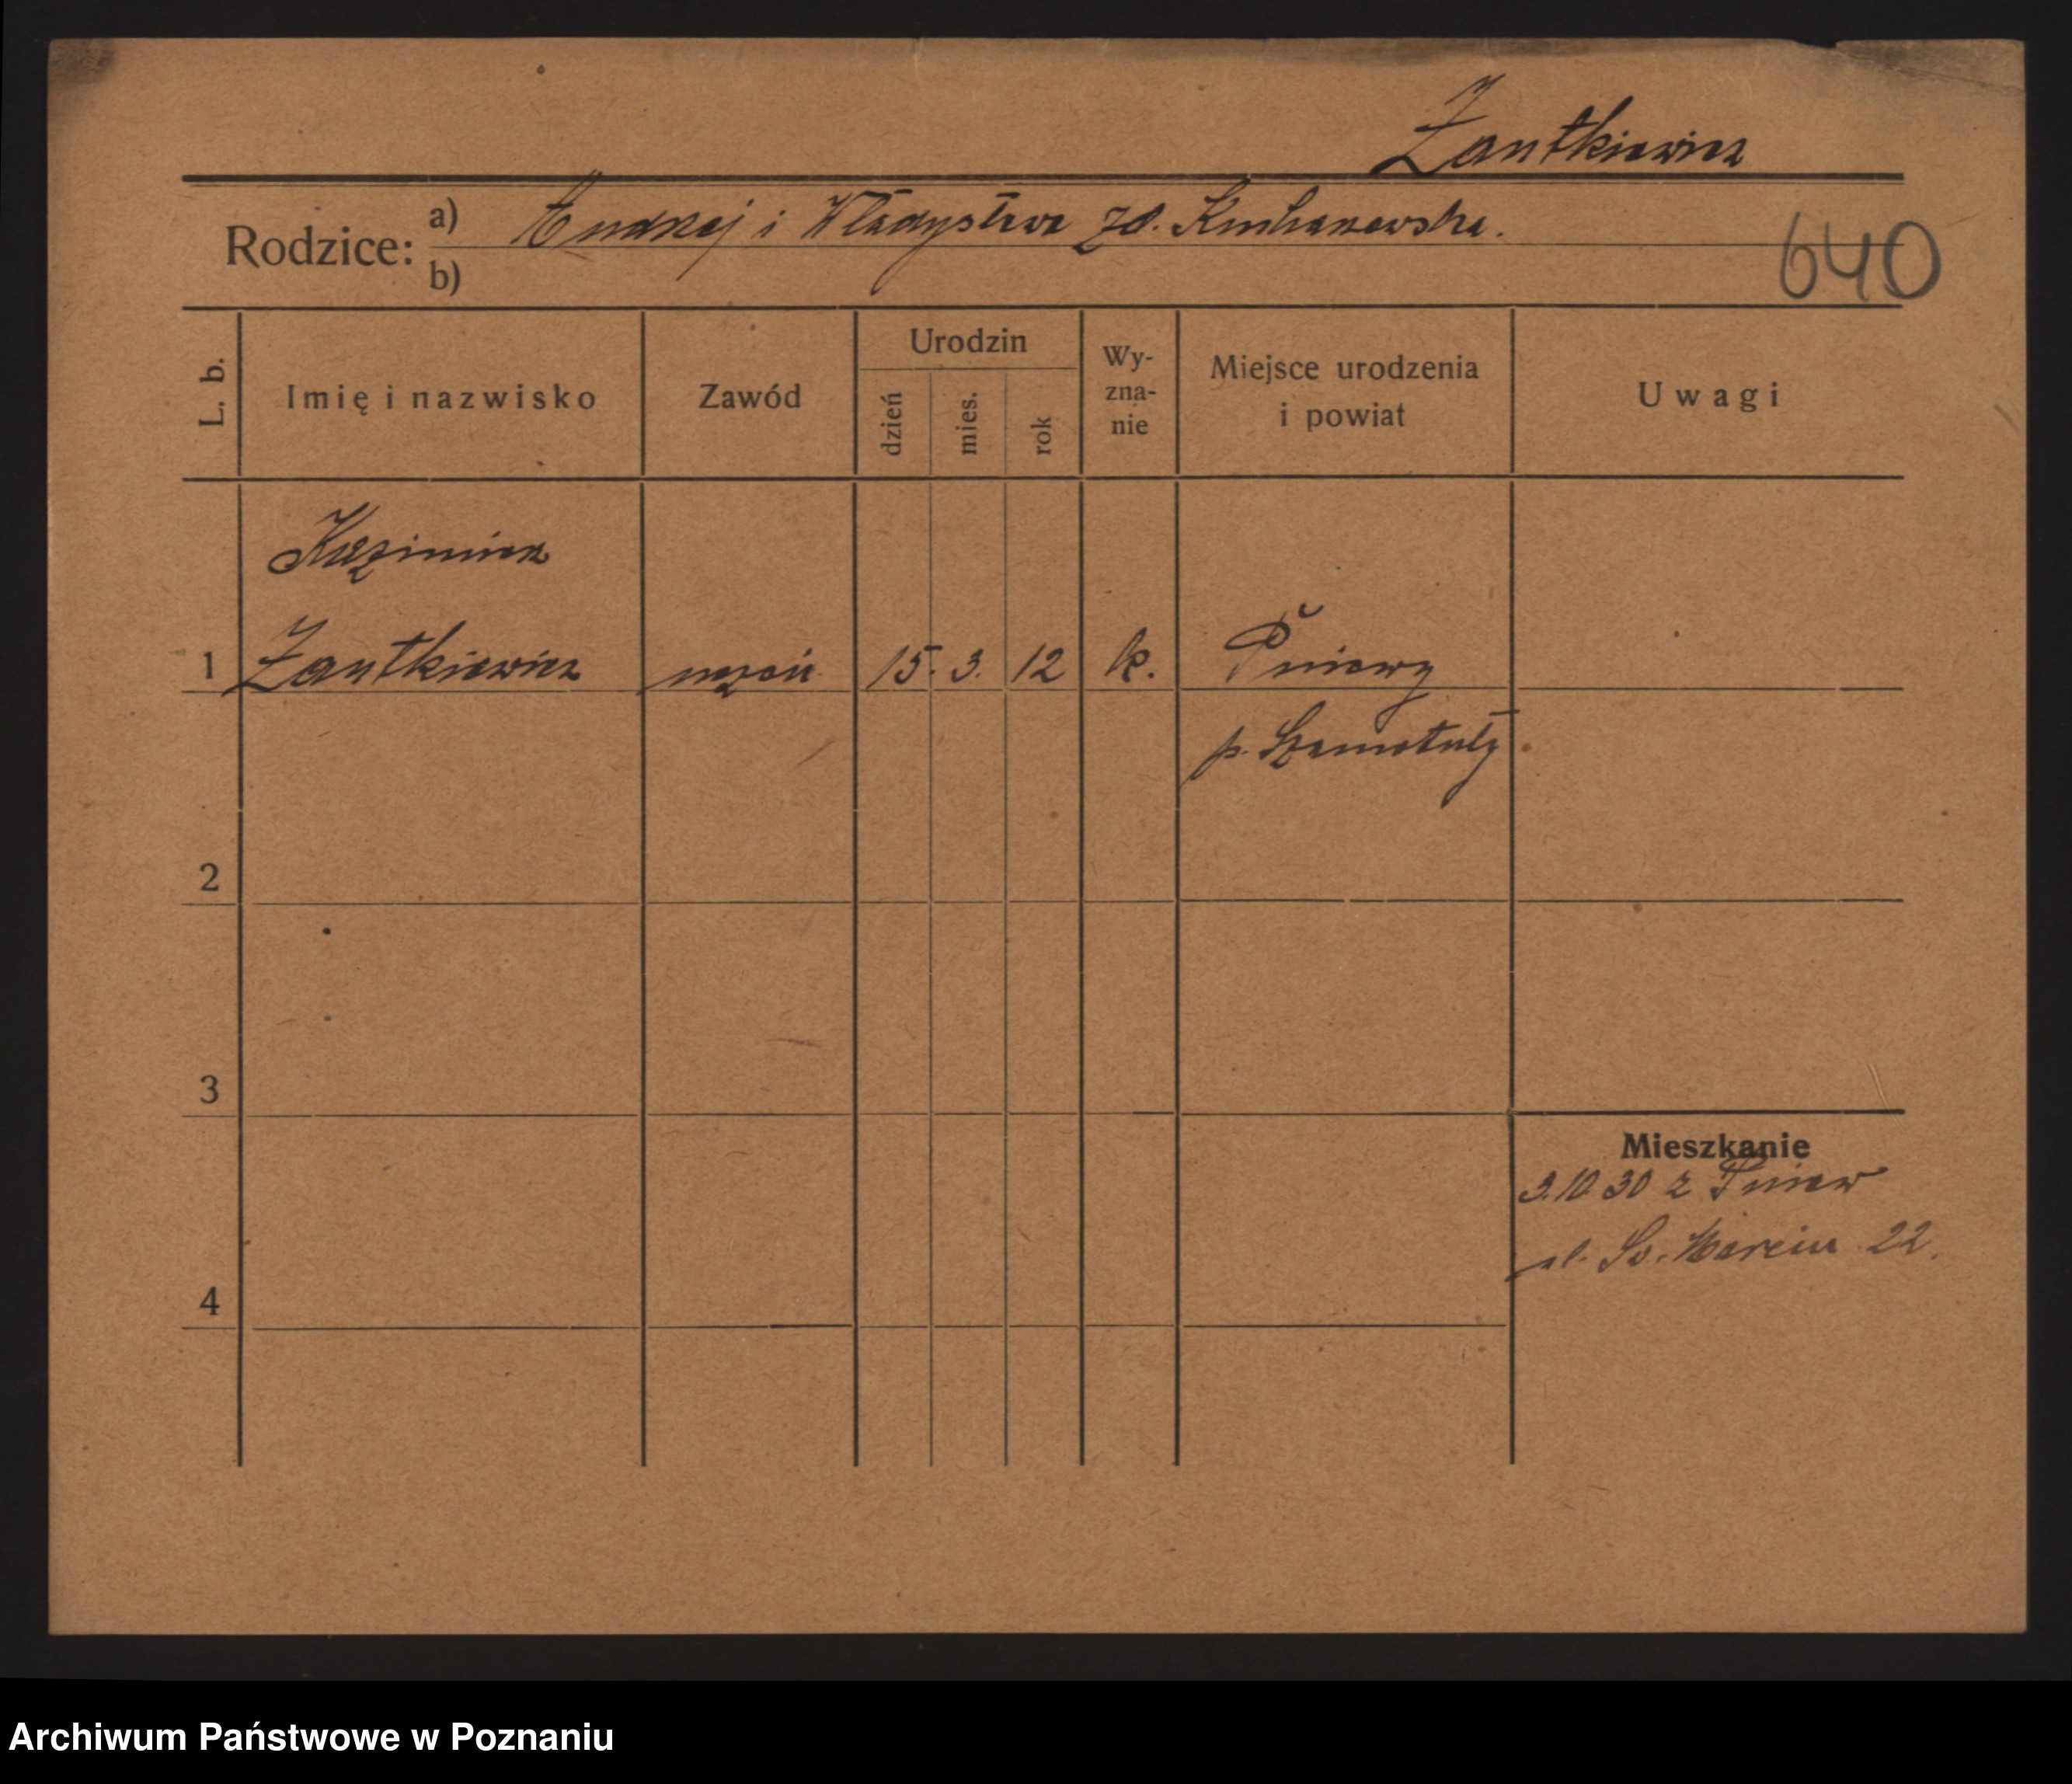 Żantkiewicz
Rodzice: a) Andrzej i Władysława zd. Kuchanowska.
b)
640
L. b.
Imię i nazwisko
Zawód
Urodzin
dzień
mies.
rok
Wy-
zna-
nie
Miejsce urodzenia
i powiat
Uwagi
Kazimierz
1 Żantkiewicz uczeń 15. 3. 12 k. Pniewy
p. Szamotuły
2
3
Mieszkanie
3.10.30 z Pniew
ul. Św. Marcin 22.
4
Archiwum Państwowe w Poznaniu